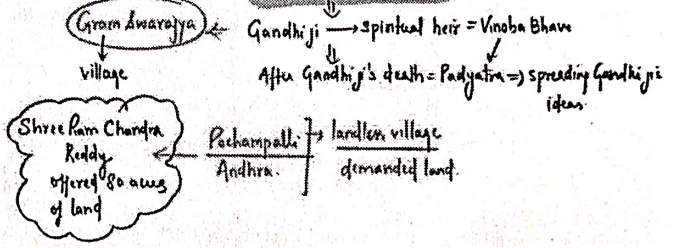 Gram Swarajya ⇐ Gandhiji → spiritual heir = Vinoba Bhave
↓
village
After Gandhiji's death = Padyatra => spreading Gandhiji's
ideas
Shree Ram Chandra
Reddy
offered 80 acres
of land
Pochampalli
Andhra.
landless village
demanded land.